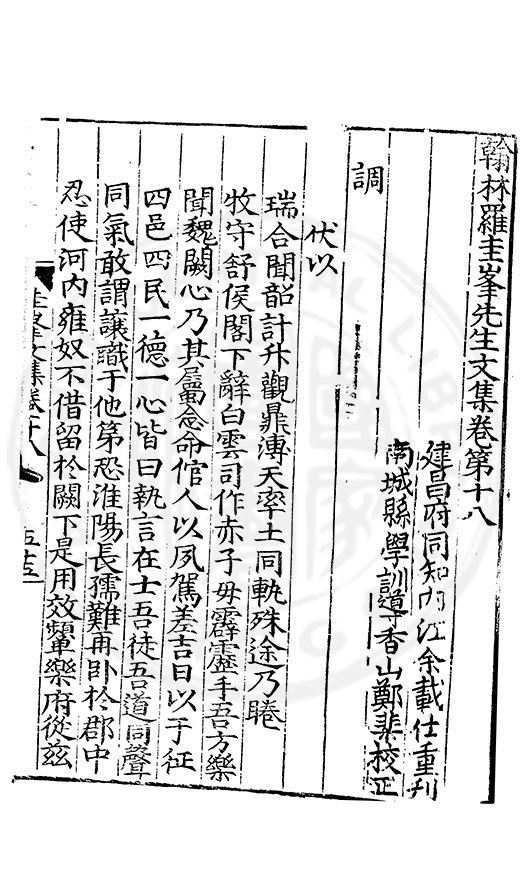 翰林羅圭峯先生文集卷第十八
建昌府同知內江余載仕重刋
南城縣學訓導香山鄭棐校正
調
伏以
瑞合聞韶計升觀鼎溥天率土同軌殊途乃睠
牧守舒侯閣下辭白雲司作赤子毋霹靂手吾方樂
聞魏闕心乃其屬念命倌人以夙駕差吉日以于征
四邑四民一德一心皆曰執言在士吾徒吾道同聲
同氣敢謂讓識于他第恐淮陽長孺難再卧於郡中
忍使河內雍奴不借留於闕下是用效顰樂府從茲
圭峯文集卷十八